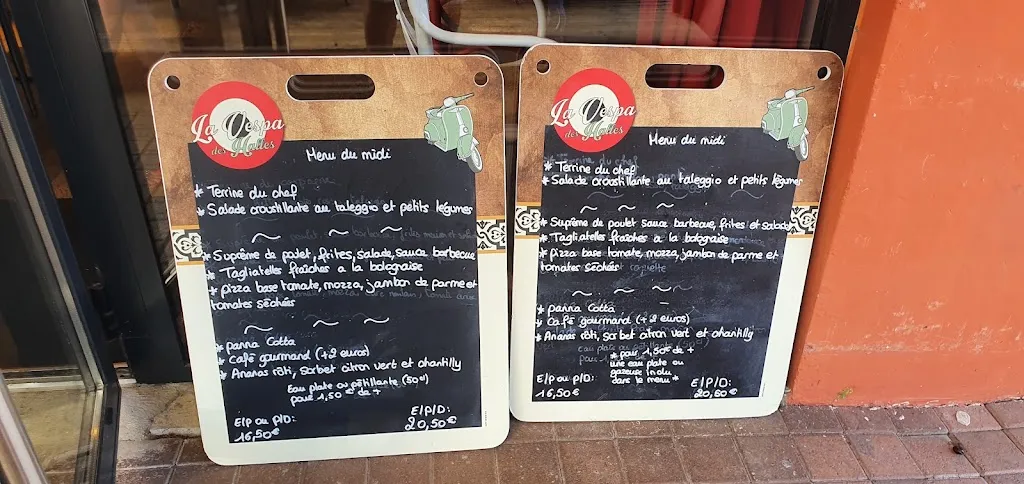 La Vespa
des Halles
Menu du midi
* Terrine du chef
* Salade croustillante au taleggio et petits légumes
* Suprême de poulet, frites, salade, sauce barbecue
* Tagliatelles fraîches a la bolognaise
* pizza base tomate, mozza, jambon de parme et
tomates séchées
* panna Cotta
* Café gourmand (+2 euros)
* Ananas rôti, sorbet citron vert et chantilly
Eau plate ou pétillante (50cl)
pour 1,50€ de +
E/P ou P/D:
16,50€
E/P/D:
20,50€
La Vespa
des Halles
Menu du midi
* Terrine du chef
* Salade croustillante au taleggio et petits légumes
* Suprême de poulet sauce barbecue, frites et salade
* Tagliatelles fraîches a la bolognaise
* pizza base tomate, mozza, jambon de parme et
tomates séchées
* panna Cotta
* Café gourmand (+2 euros)
Ananas rôti, sorbet citron vert et chantilly
* pour 1,50€ de +
une eau plate ou
gazeuse inclu
dans le menu *
E/P ou P/D:
16,50€
E/P/D:
20,50€